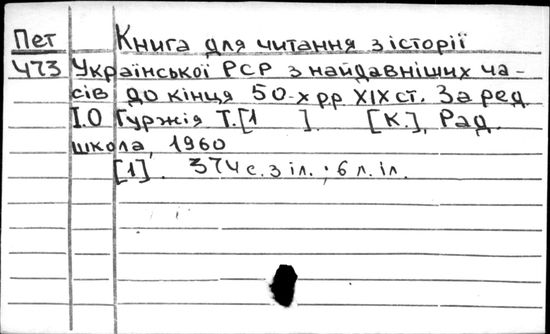 Пет Книга для читання з історії
Ч73 Української РСР з найдавніших ча-
сів до кінця 50-х рр XIX ст. За ред.
І.О Гуржія Т.[1 ]. [К.], Рад.
школа, 1960
[1]. 374 с. з іл. ; 6 л. іл.